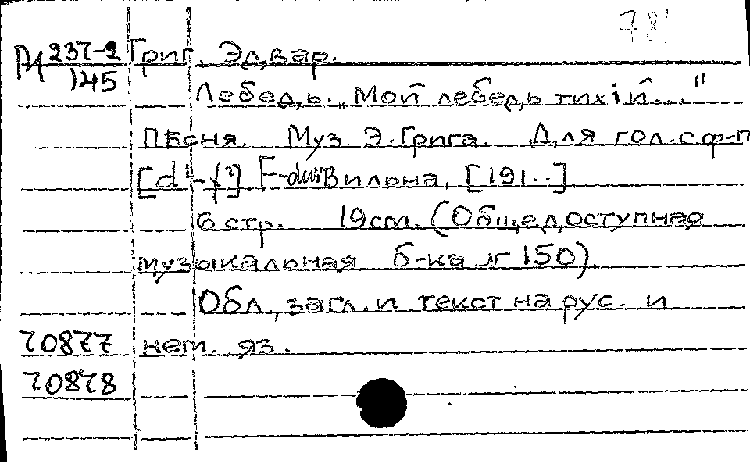 78
237-2 Григ, Эдвар.
145
Лебедь. „Мой лебедь тихiй..."
Пѣсня. Муз Э. Грига. Для гол. с ф-п
[d¹-f²] F-dur Вильна, [191..]
6 стр. 19 см. (Общедоступная
музыкальная б-ка № 150).
Обл., загл. и текст на рус. и
70877 нем. яз.
70878